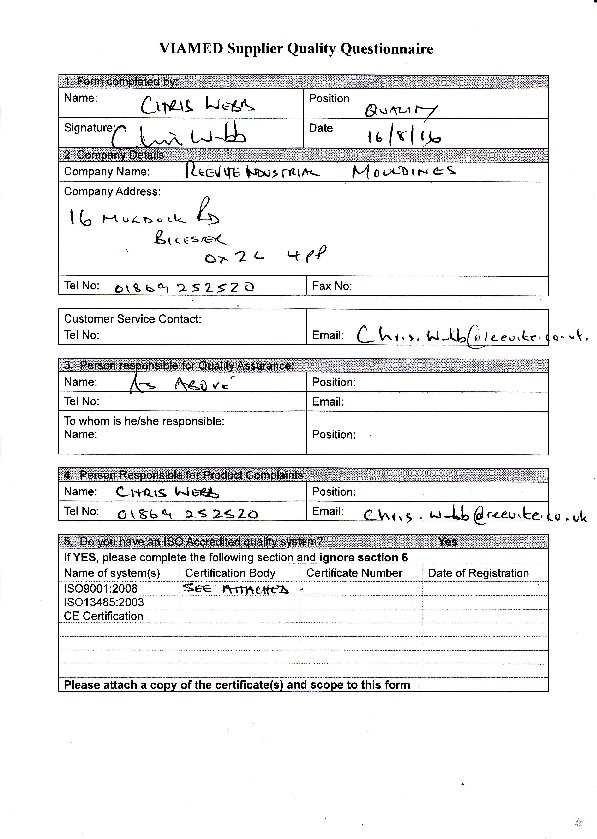 VIAMED Supplier Quality Questionnaire
1. Form completed by:
Name: CHRIS WEBB Position QUALITY
Signature: Chris Webb Date 16/8/16
2. Company Details
Company Name: REEVITE INDUSTRIAL MOULDINGS
Company Address:
16 MURDOCK RD
BICESTER
OX26 4PP
Tel No: 01869 252520 Fax No:
Customer Service Contact:
Tel No: Email: Chris.Webb@reevite.co.uk.
3. Person responsible for Quality Assurance:
Name: AS ABOVE Position:
Tel No: Email:
To whom is he/she responsible:
Name: Position:
4. Person Responsible for Product Complaints
Name: CHRIS WEBB Position:
Tel No: 01869 252520 Email: Chris.Webb@reevite.co.uk
5. Do you have an ISO Accredited quality system? Yes
If YES, please complete the following section and ignore section 6
Name of system(s) Certification Body Certificate Number Date of Registration
ISO9001:2008 SEE ATTACHED -
ISO13485:2003
CE Certification
Please attach a copy of the certificate(s) and scope to this form